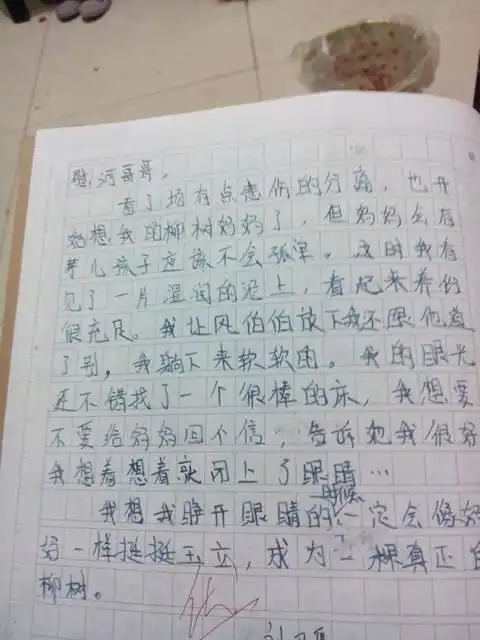 慰,河哥哥。
看了场有点悲伤的分离,也开
始想我的柳树妈妈了,但妈妈会有
芽儿孩子应该不会孤单。这时我看
见了一片湿润的泥土,看起来养份
很充足。我让风伯伯放下我还跟他道
了别,我躺下来软软的。我的眼光
还不错找了一个很棒的床,我想要
不要给妈妈回个信,告诉她我很好
我想着想着就闭上了眼睛…
我想我睁开眼睛的时候一定会像妈
一样挺挺玉立,成为一棵真正
柳树。